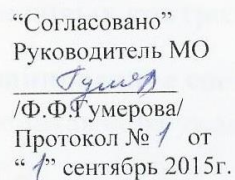 “Согласовано”
Руководитель МО
Гумер
/Ф.Ф.Гумерова/
Протокол № 1 от
“1” сентябрь 2015г.